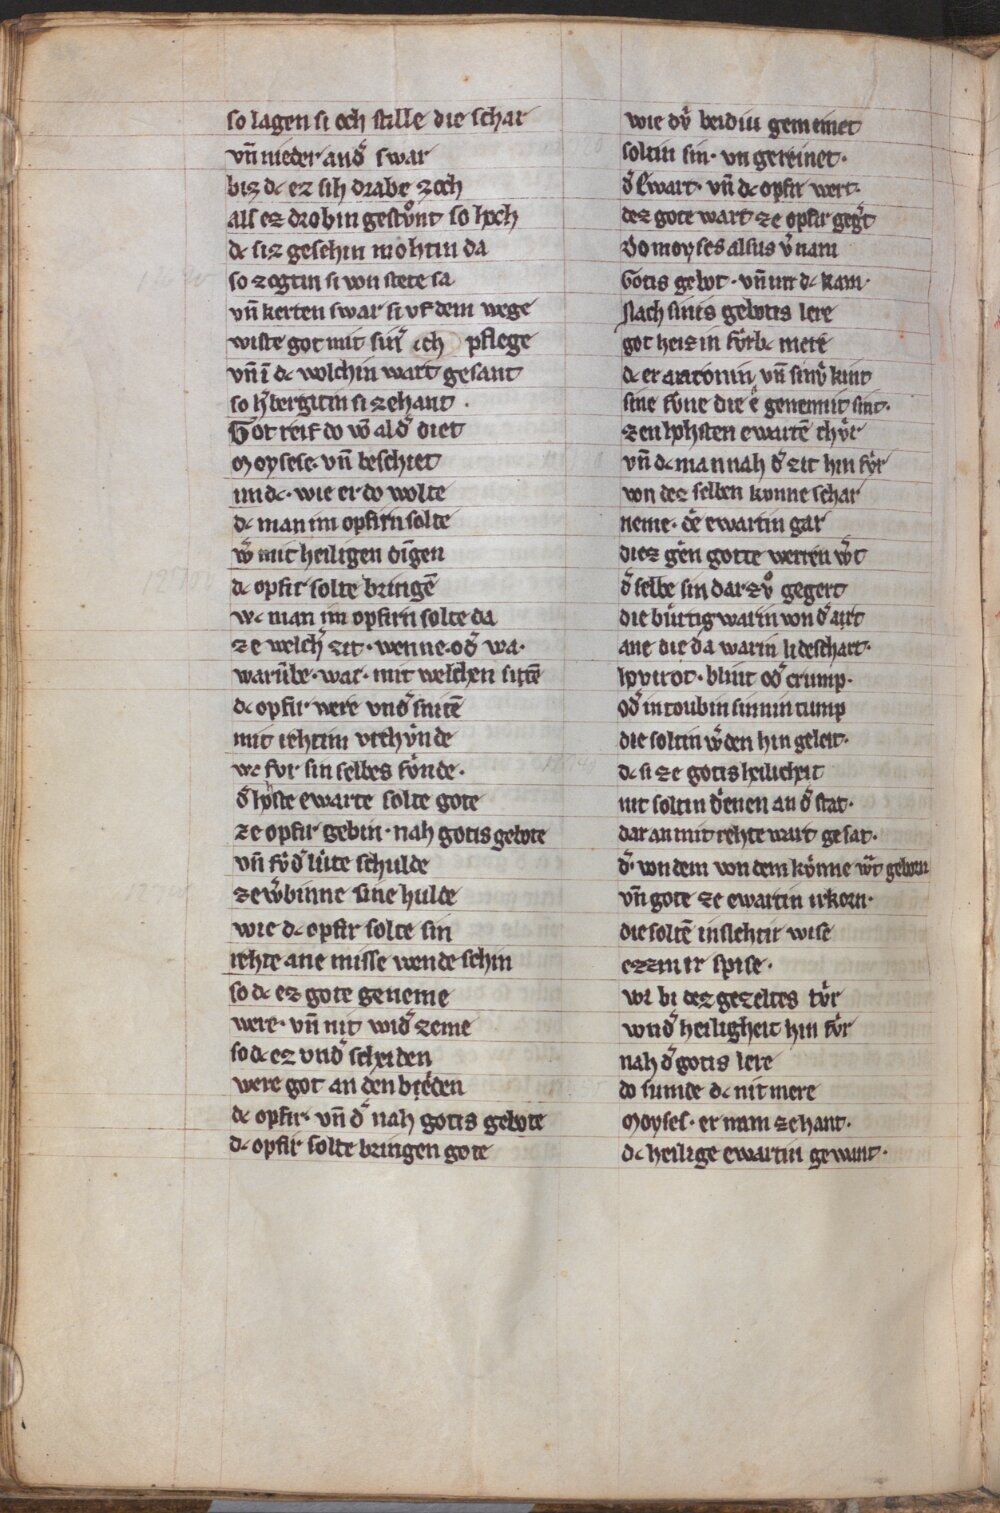 so lagen si och stille die schar
vn̄ nieder and͛ swar
biz dc ez sih drabe zoch
als ez drobin gestuͦnt so hoch
dc siz gesehin mohtin da
so zogtin si von stete sa
vn̄ kerten swar si vf dem wege
wiste got mit sin͛ ich pflege
vn̄ ī dc wolchin wart gesant
so h͛bergitin si zehant .
Got reif do vō ald͛ diet
Moysese. vn̄ beschiet
im dc. wie er do wolte
dc man im opfirn solte
w̄ mit heiligen dīgen
dc opfir solte bringē
wc man im opfirn solte da
ze welch͛ zit. wenne. od͛ wa.
warūbe. war. mit welchen sittē
dc opfir were vnd͛ snitē
mit rehtim vrchv́nde
wc fvr sin selbes sv́nde.
d͛ hoͤste ewarte solte gote
ze opfir gebin. nah gotis gebote
vn̄ fv́ d͛ lúte schulde
zew͛binne sine hulde
wie dc opfir solte sin
rehte ane misse wende schin
so dc ez gote geneme
were. vn̄ nit wid͛ zeme
so dc ez vnd͛ scheiden
were got an den beiden
dc opfir. vn̄ d͛ nah gotis gebote
dc opfir solte bringen gote
wie dv́ beidiu gemeinet
soltin sin. vn gereinet.
d͛ Ewart. vn̄ dc opfir wert.
dez gote wart ze opfir geg͛t
Do moyses alsus v͛nam
Gotis gebot. vn̄ im dc kam.
Nach sinis gebotis lere
got heiz in fv́rbc mere
dc er aaronin vn̄ sinv́ kint
sine sv́ne die e͛ genemit sint.
zen hohsten ewartē chv́r
vn̄ dc man nah d͛ zit hin fv́r
von dez selben kunne schar
neme. de͛ ewartin gar
diez gen gotte werren w͛t
d͛ selbe sin dar zvͦ gegert
die búrtig warin von d͛ art
ane die da warin lideschart.
hovirot. blint od͛ crump.
od͛ in toubin sinnin tump
die soltin w͛den hin geleit.
dc si ze gotis heilicheit
nit soltin dienen an d͛ stat.
dar an mit rehte wart gesat.
d͛. von dem von dem kv́nne w͛t geborn
vn̄ gote ze ewartin irkorn.
die soltē in slehtir wise
ezzin ir spise.
vz bi dez gezeltes tv́r
vnd͛ heiligheit hin fv́r
nah d͛ gotis lere
do sumte dc nit mere
Moyses. er nam zehant.
dc heilige ewartin gewant.